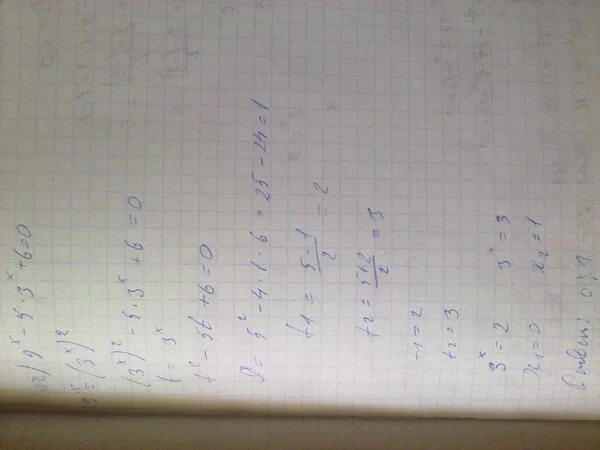 а) 9ˣ - 5·3ˣ + 6 = 0
9ˣ = (3ˣ)²
(3ˣ)² - 5·3ˣ + 6 = 0
t = 3ˣ
t² - 5t + 6 = 0
D = 5² - 4·1·6 = 25 - 24 = 1
t1 = (5-1)/2 = 2
t2 = (5+2)/2 = 3
t1 = 2
t2 = 3
3ˣ = 2 3ˣ = 3
x1 = 0 x2 = 1
Ответ: 0; 1